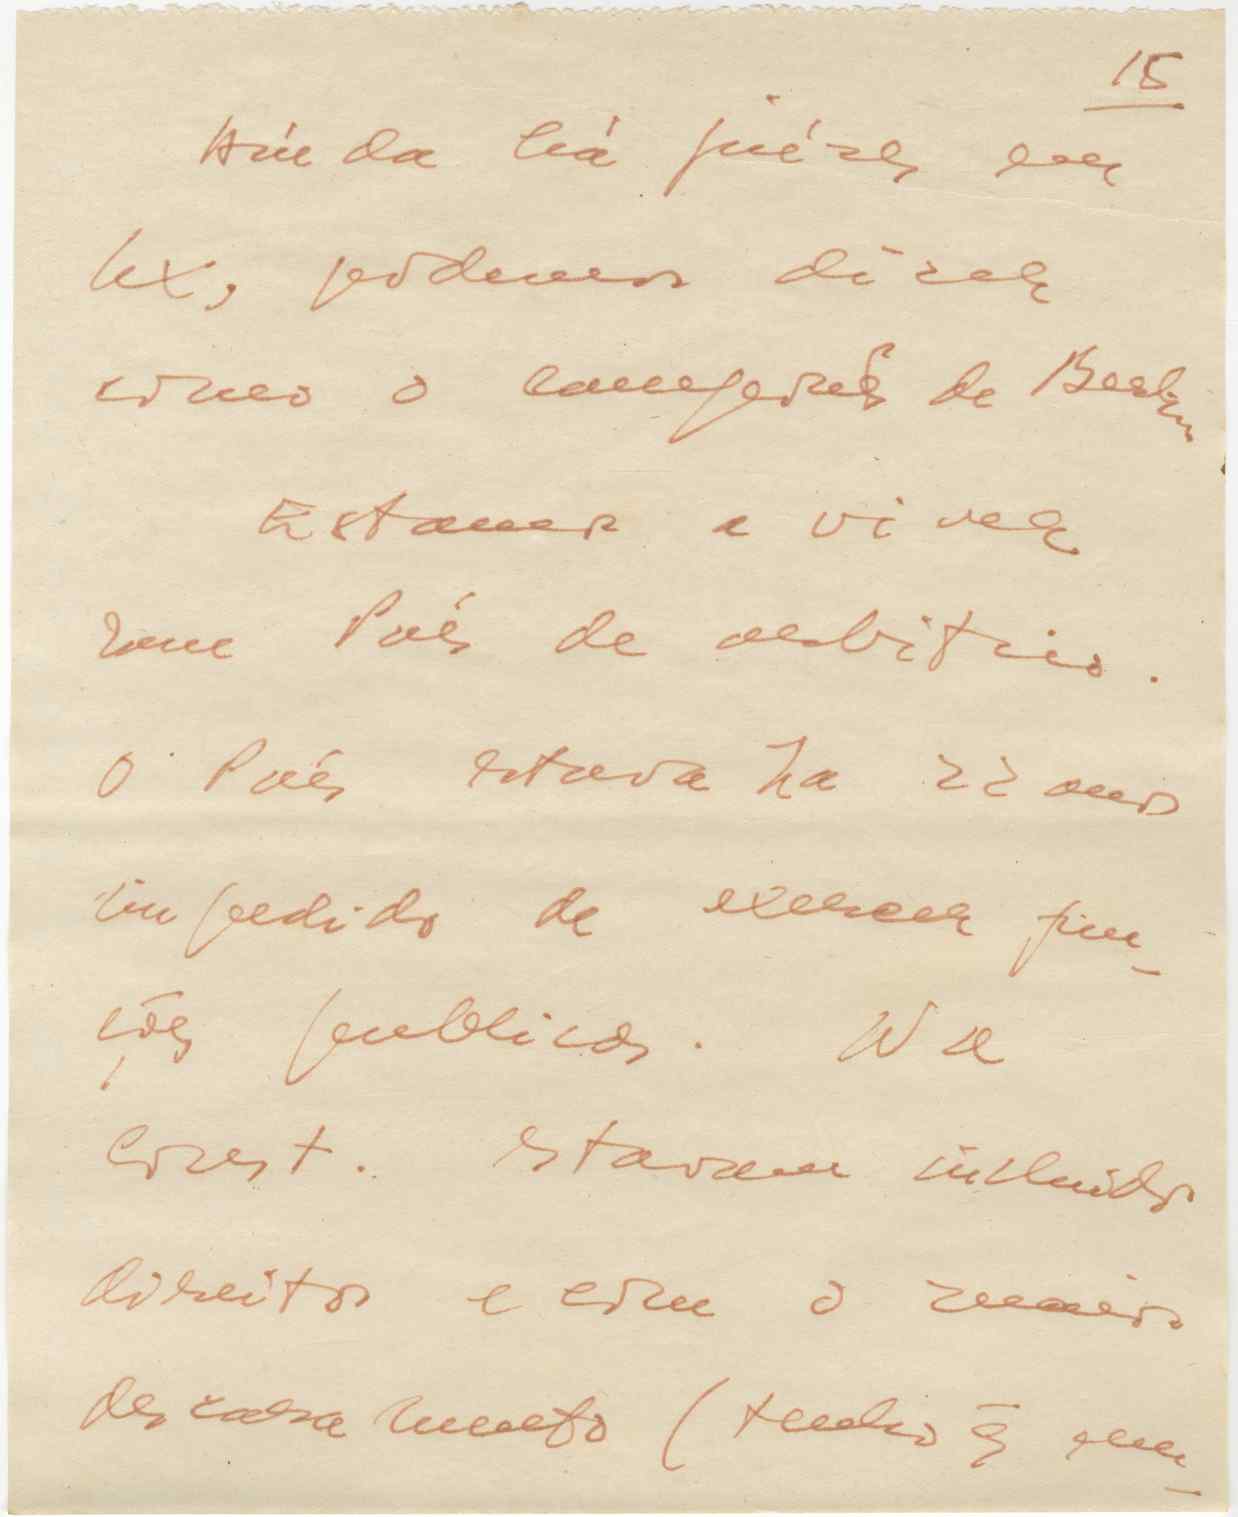 15
Ainda há juízes em
Lx, podemos dizer
como o camponês de Berlim
Estamos a viver
num País de arbitrio.
O País estava ha 22 anos
impedido de exercer fun-
ções publicas. Na
Const. estavam incluidos
direitos e com o maior
descaramento (tenho q em-